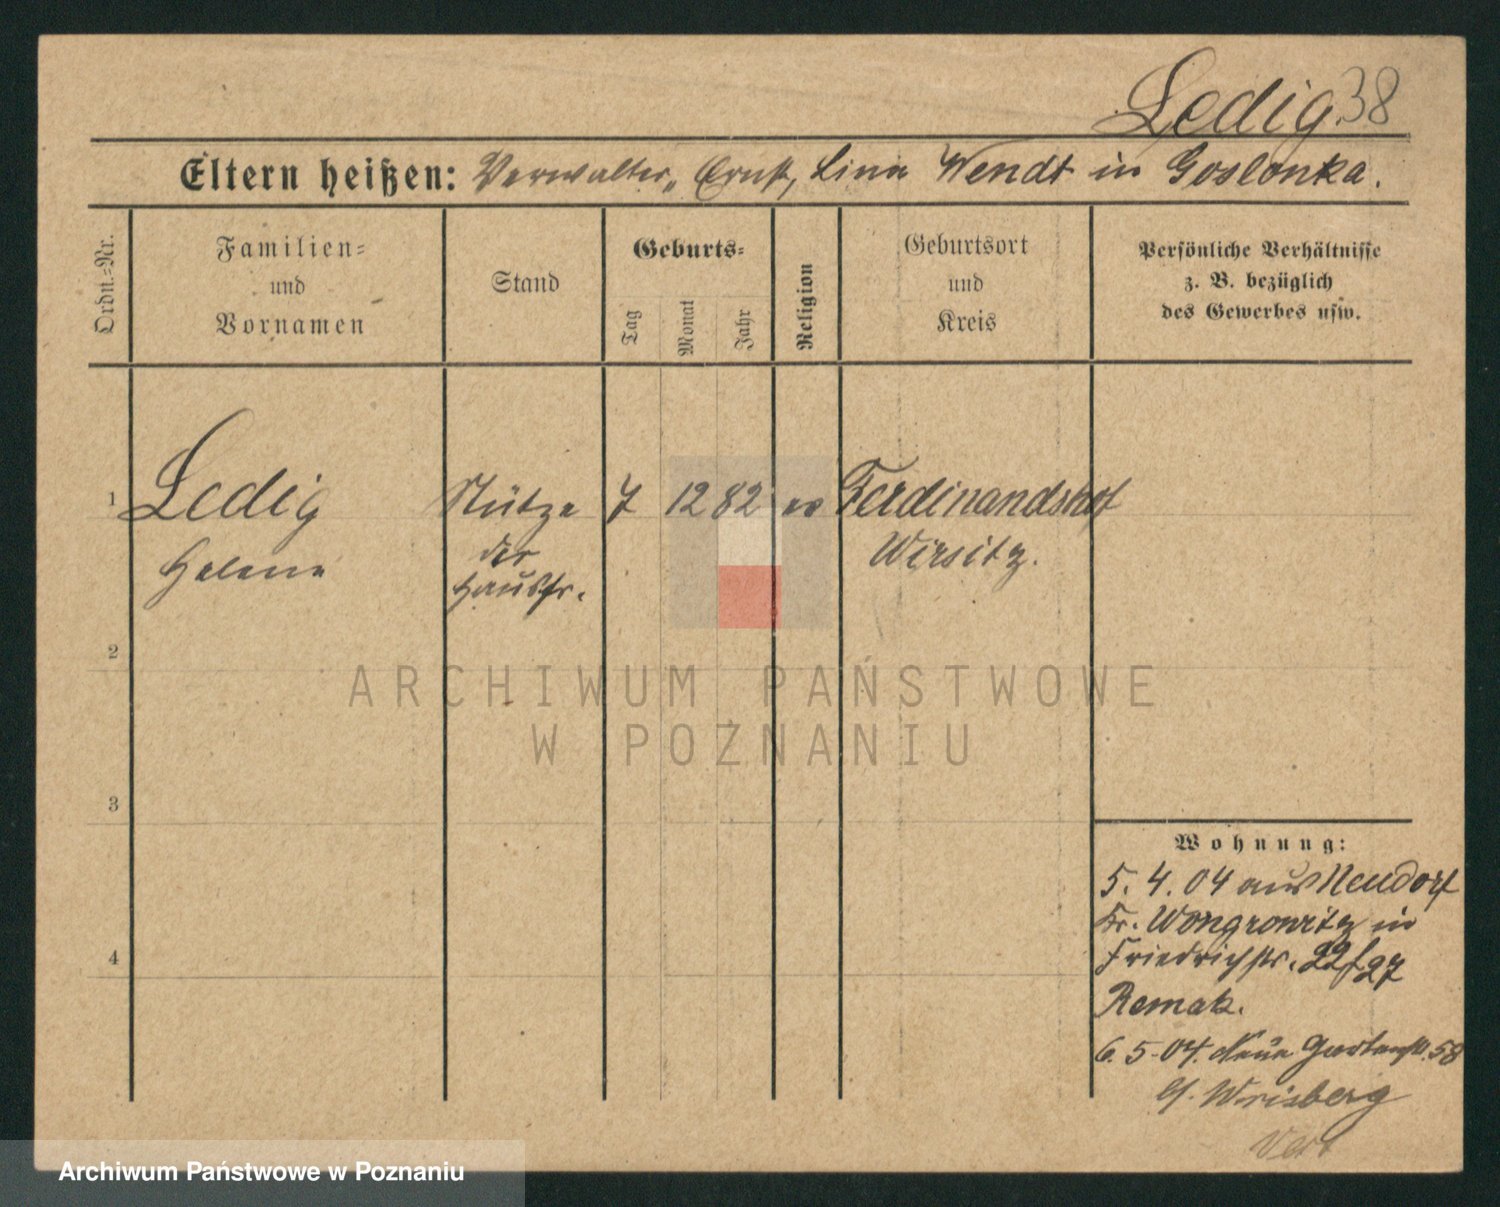 Ledig. 38
Eltern heißen: Verwalter, Ernst, Lina Wendt in Goslonka.
Ordn.=Nr.
Familien=
und
Vornamen
Stand
Geburts=
Tag
Monat
Jahr
Religion
Geburtsort
und
Kreis
Persönliche Verhältnisse
z. B. bezüglich
des Gewerbes usw.
1 Ledig Stütze 7 12 82 ev Ferdinandshof
Helene der Wirsitz.
Hausfr.
2
3
4
ARCHIWUM PAŃSTWOWE
W POZNANIU
Wohnung:
5. 4. 04 aus Neudorf
Kr. Wongrowitz in
Friedrichstr. 22/27
Remak.
6. 5. 04. Neue Gartenstr. 58
b/. Wrisberg
Archiwum Państwowe w Poznaniu